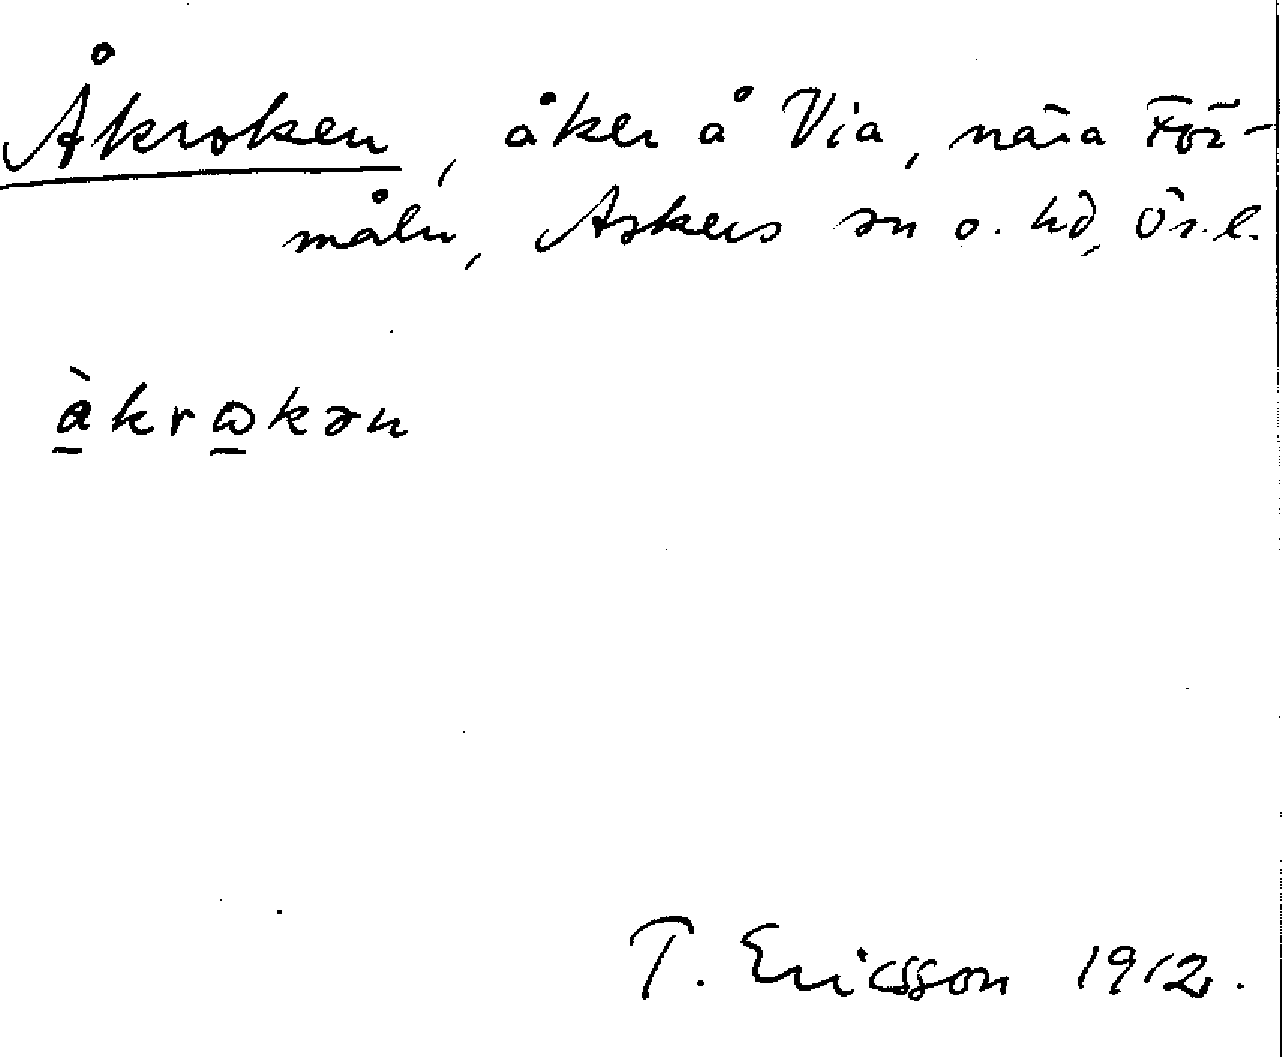 Åkroken, åker å Via, nära För-
måln, Askers sn o. hd, Ör. l.
å̱̀krω̱kən
T. Ericsson 1912.